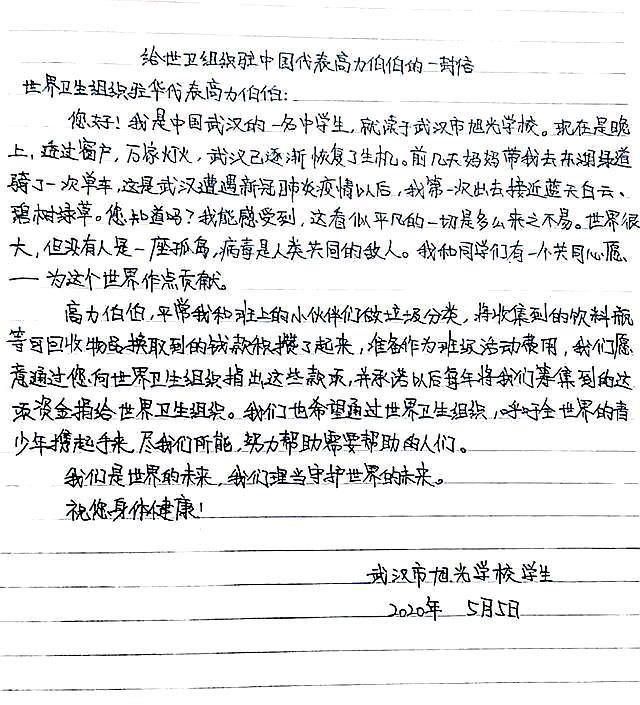 给世卫组织驻中国代表高力伯伯的一封信
世界卫生组织驻华代表高力伯伯:
您好!我是中国武汉的一名中学生,就读于武汉市旭光学校。现在是晚
上,透过窗户,万家灯火,武汉已逐渐恢复了生机。前几天妈妈带我去东湖绿道
骑了一次单车,这是武汉遭遇新冠肺炎疫情以后,我第一次出去接近蓝天白云、
碧树绿草。您知道吗?我能感受到,这看似平凡的一切是多么来之不易。世界很
大,但没有人是一座孤岛,病毒是人类共同的敌人。我和同学们有一个共同心愿
——为这个世界作点贡献。
高力伯伯,平常我和班上的小伙伴们做垃圾分类,将收集到的饮料瓶
等可回收物品换取到的钱款积攒了起来,准备作为班级活动费用,我们愿
意通过您向世界卫生组织捐出这些款项,并承诺以后每年将我们筹集到的这
项资金捐给世界卫生组织。我们也希望通过世界卫生组织,呼吁全世界的青
少年携起手来,尽我们所能,努力帮助需要帮助的人们。
我们是世界的未来,我们理当守护世界的未来。
祝您身体健康!
武汉市旭光学校学生
2020年 5月5日